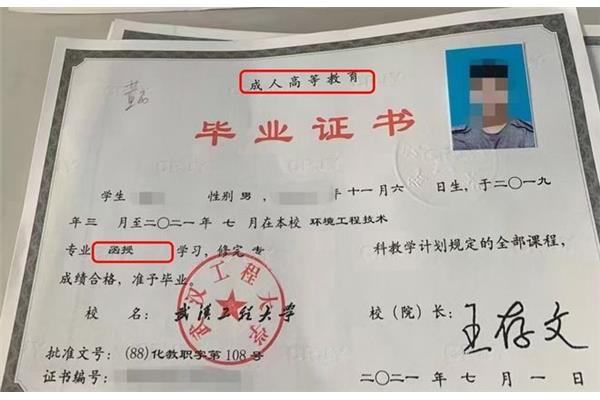 成人高等教育
毕业证书
学生 性别 男， 年十一月六 日生，于二〇一九
年三 月至二〇二一年 七 月在本校 环境工程技术
专业 函授 学习，修完 专 科教学计划规定的全部课程，
成绩合格，准予毕业。
校 名： 武汉工程大学 校（院）长： 王存文
批准文号：(88)化教职字第108号
证书编号：
二〇二一 年 七 月 一 日
武汉工程大学